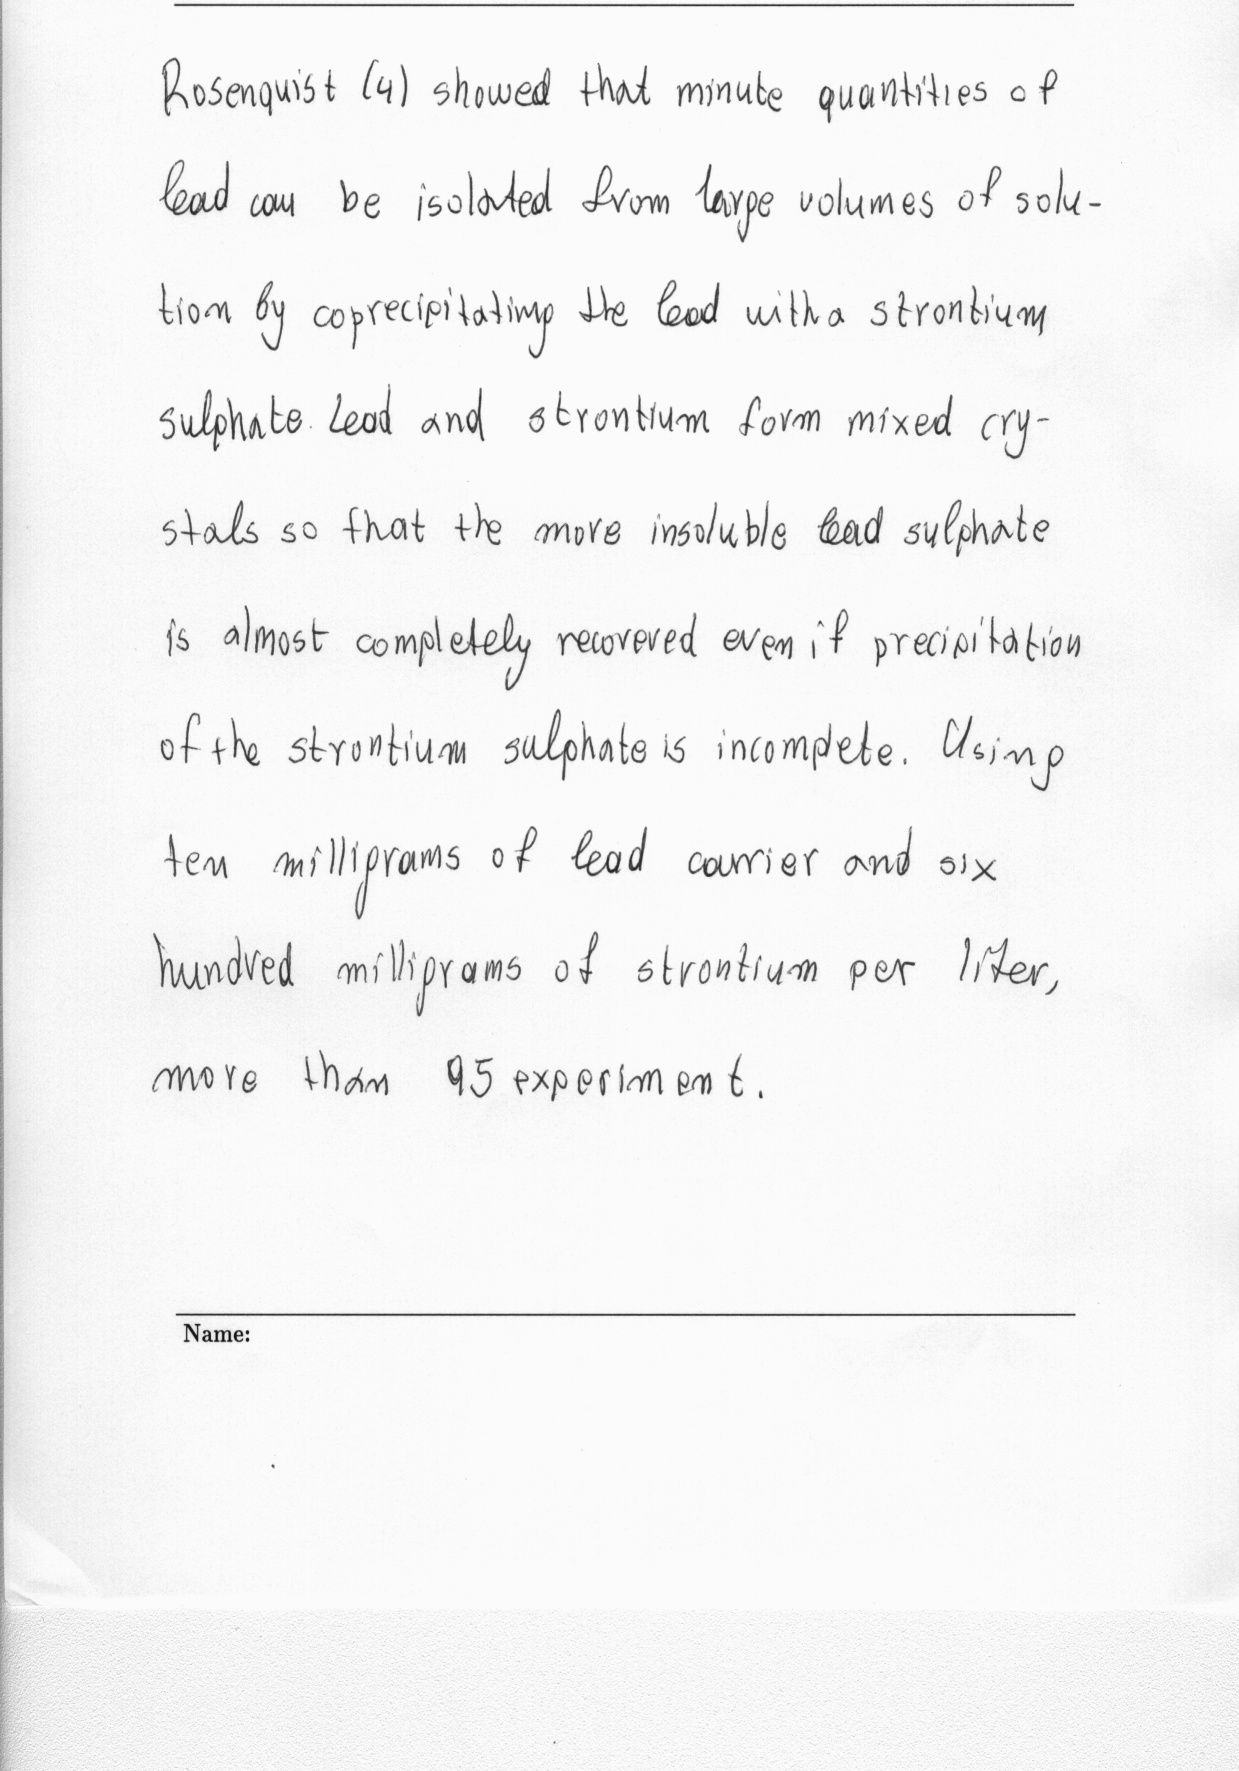 Rosenquist (4) showed that minute quantities of
lead can be isolated from large volumes of solu-
tion by coprecipitating the lead with a strontium
sulphate. Lead and strontium form mixed cry-
stals so that the more insoluble lead sulphate
is almost completely recovered even if precipitation
of the strontium sulphate is incomplete. Using
ten milligrams of lead carrier and six
hundred milligrams of strontium per liter,
more than 95 experiment.
Name: